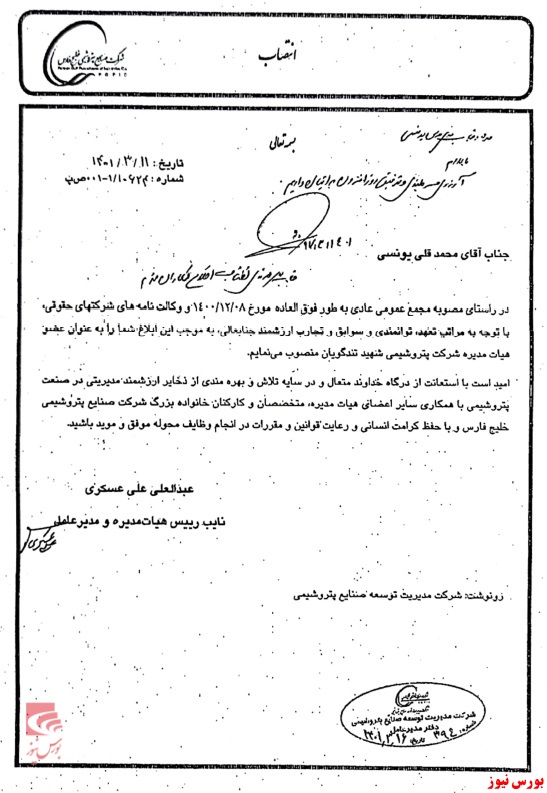 انتصاب
شرکت صنایع پتروشیمی خلیج فارس
PGPIC
بسمه تعالی
تاریخ: ۱۴۰۱/۳/۱۱
شماره: ۱/۱۰۶۲۴-۰۰۱ص‌پ
جناب آقای محمد قلی یونسی
در راستای مصوبه مجمع عمومی عادی به طور فوق العاده مورخ ۱۴۰۰/۱۲/۰۸ و وکالت نامه های شرکتهای حقوقی،
با توجه به مراتب تعهد، توانمندی و سوابق و تجارب ارزشمند جنابعالی، به موجب این ابلاغ شما را به عنوان عضو
هیات مدیره شرکت پتروشیمی شهید تندگویان منصوب می‌نمایم.
امید است با استعانت از درگاه خداوند متعال و در سایه تلاش و بهره مندی از ذخایر ارزشمند مدیریتی در صنعت
پتروشیمی با همکاری سایر اعضای هیات مدیره، متخصصان و کارکنان خانواده بزرگ شرکت صنایع پتروشیمی
خلیج فارس و با حفظ کرامت انسانی و رعایت قوانین و مقررات در انجام وظایف محوله موفق و موید باشید.
عبدالعلی علی عسکری
نایب رییس هیات‌مدیره و مدیرعامل
رونوشت: شرکت مدیریت توسعه صنایع پتروشیمی
شرکت مدیریت توسعه صنایع پتروشیمی
دفتر مدیرعامل
بورس نیوز
بورس نیوز